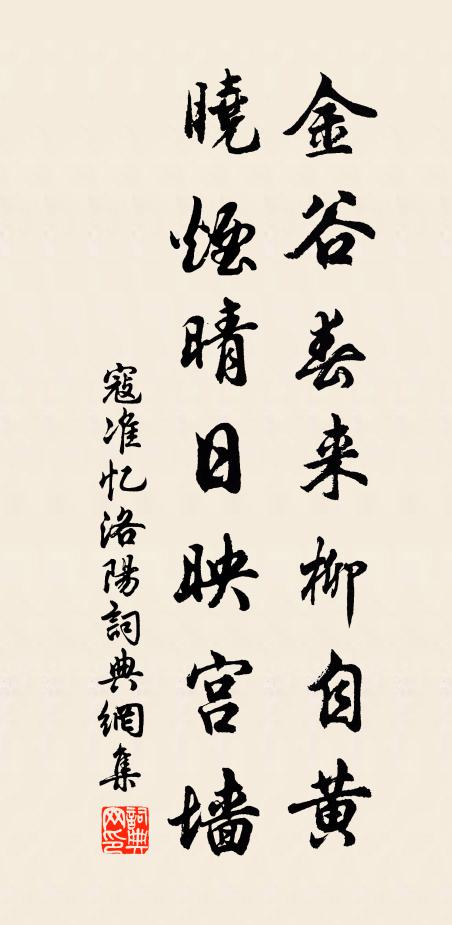 金谷春来柳自黄
曉煙晴日映宫墙
寇准忆洛陽詞典網集
詞典网印